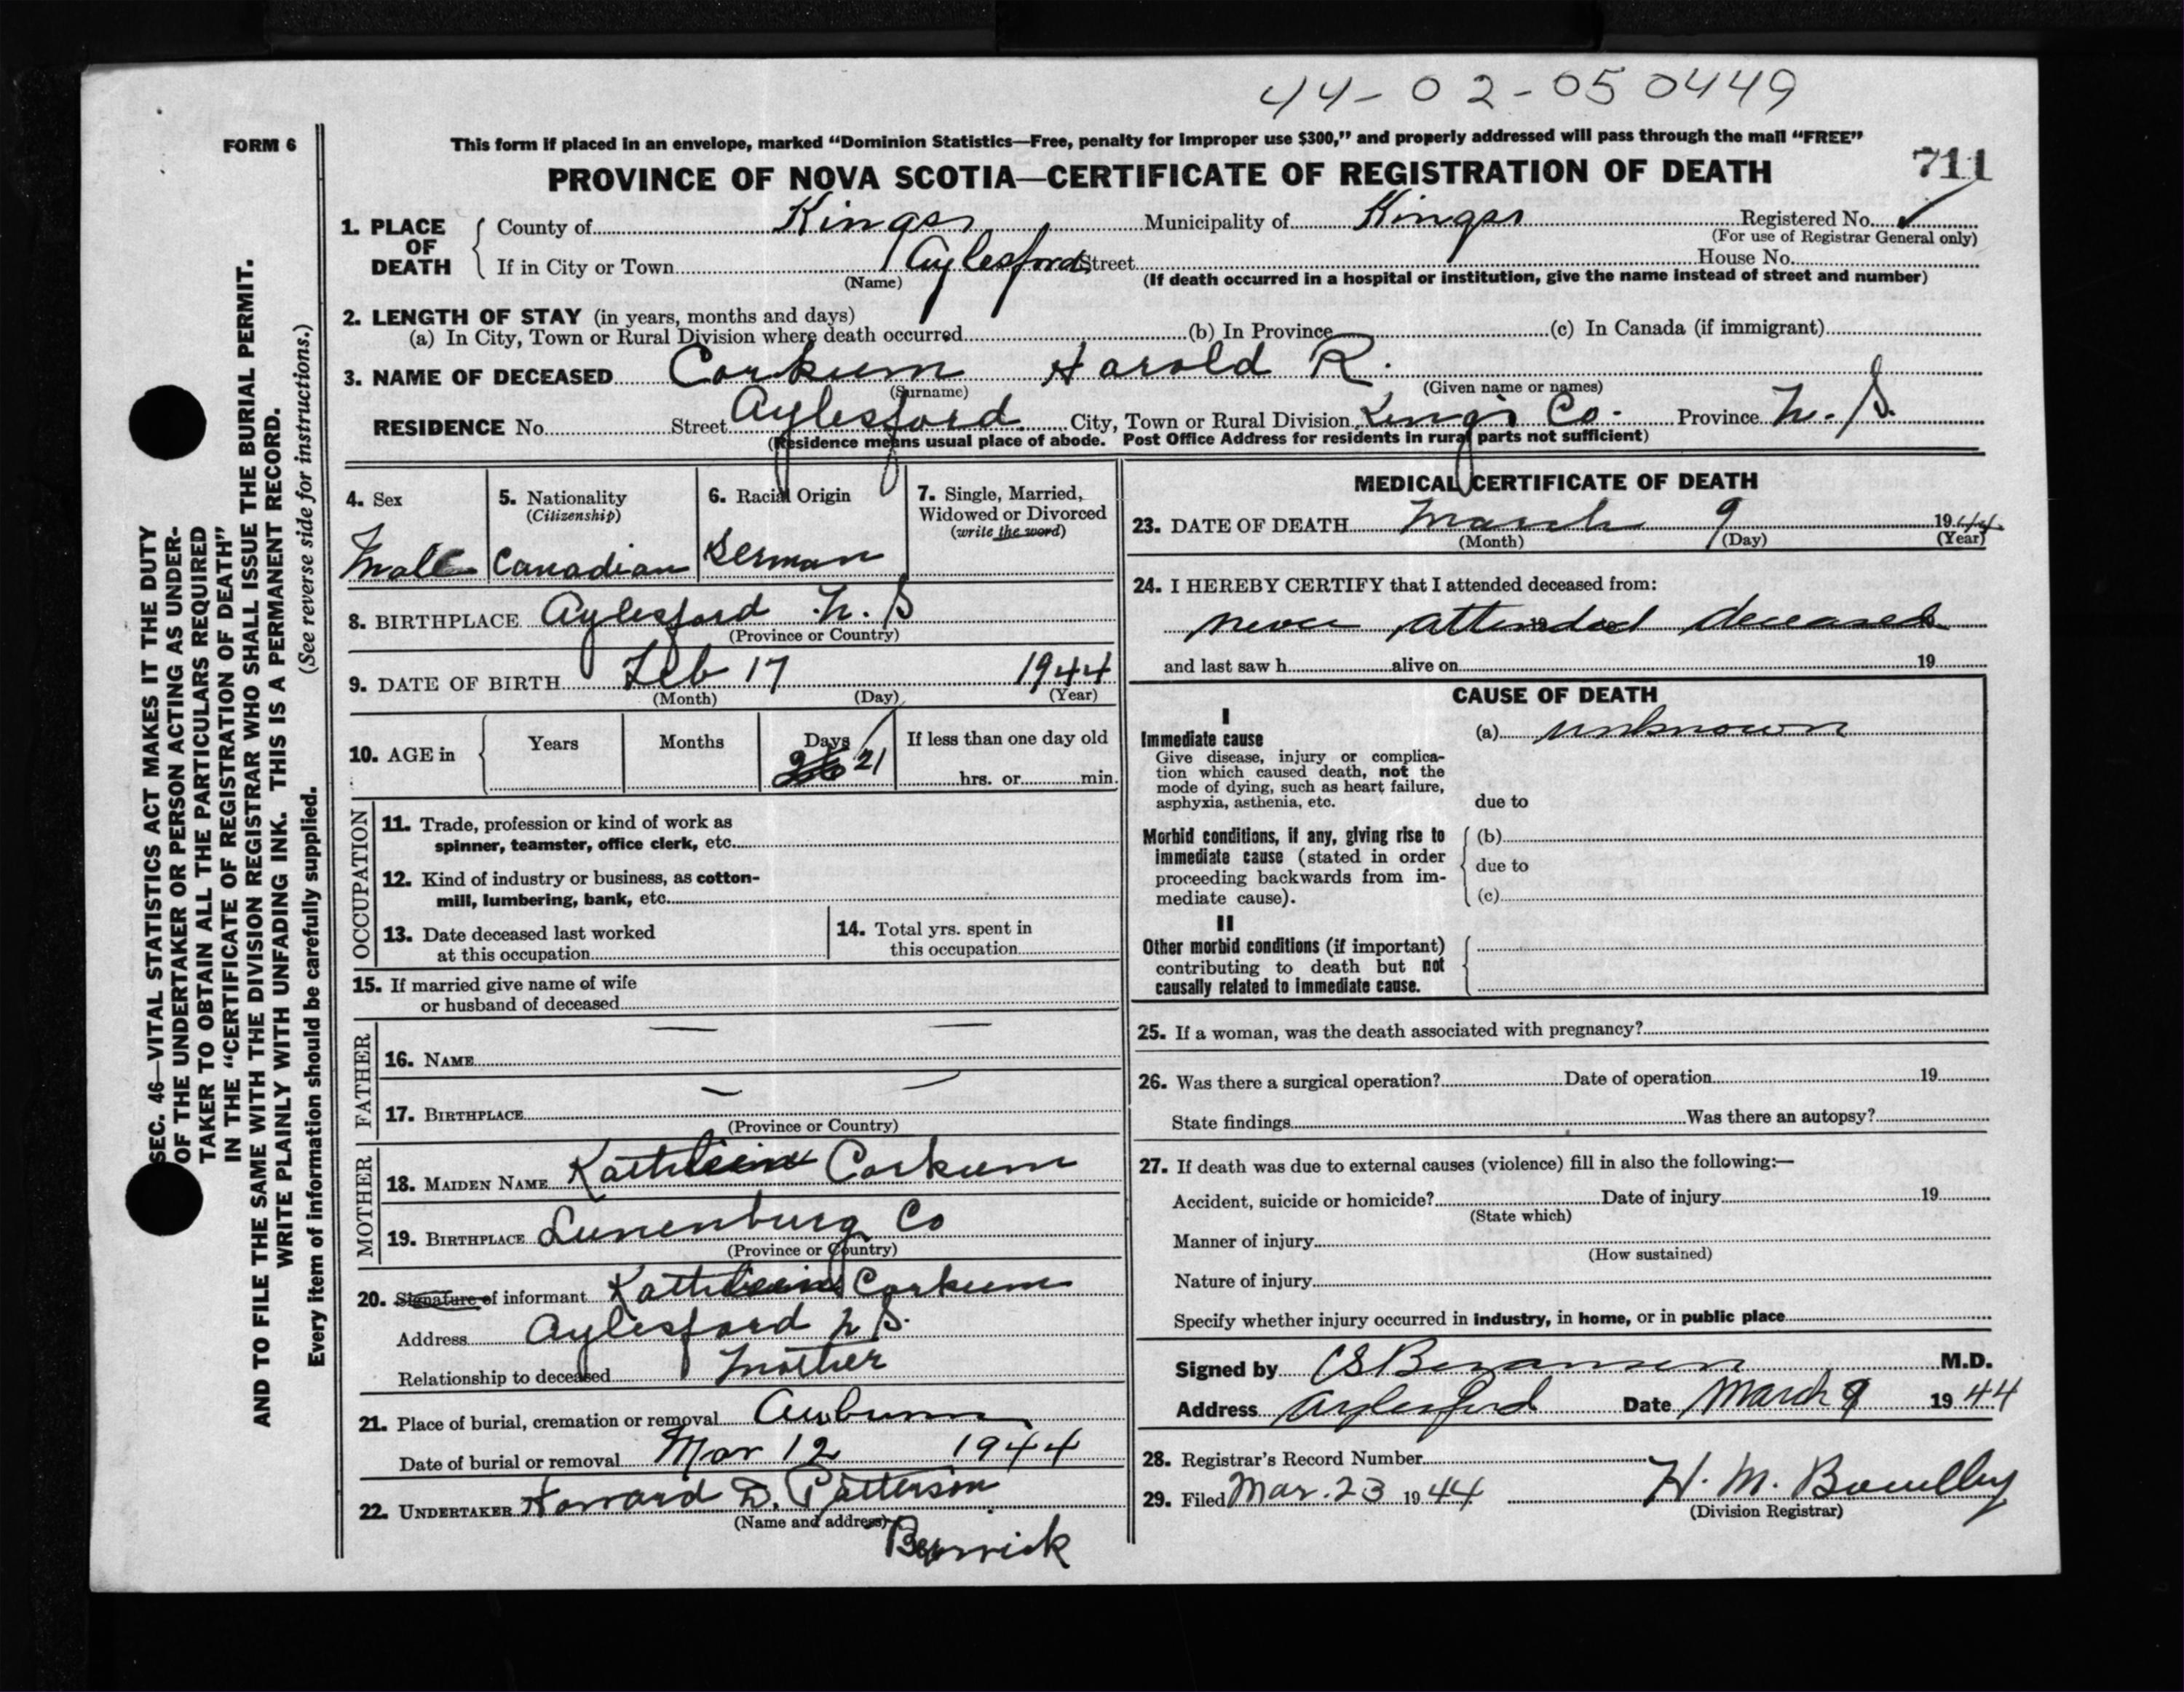 44-02-050449
FORM 6
This form if placed in an envelope, marked "Dominion Statistics—Free, penalty for improper use $300," and properly addressed will pass through the mail "FREE"
PROVINCE OF NOVA SCOTIA—CERTIFICATE OF REGISTRATION OF DEATH
711
1. PLACE OF DEATH
County of Kings Municipality of Kings Registered No. ✓
(For use of Registrar General only)
If in City or Town Aylesford Street House No.
(Name) (If death occurred in a hospital or institution, give the name instead of street and number)
2. LENGTH OF STAY (in years, months and days)
(a) In City, Town or Rural Division where death occurred (b) In Province (c) In Canada (if immigrant)
3. NAME OF DECEASED Corkum Harold R.
(Surname) (Given name or names)
RESIDENCE No. Street Aylesford City, Town or Rural Division Kings Co. Province N. S.
(Residence means usual place of abode. Post Office Address for residents in rural parts not sufficient)
4. Sex
Male
5. Nationality
(Citizenship)
Canadian
6. Racial Origin
German
7. Single, Married,
Widowed or Divorced
(write the word)
8. BIRTHPLACE Aylesford N. S
(Province or Country)
9. DATE OF BIRTH Feb 17 1944
(Month) (Day) (Year)
10. AGE in
Years
Months
Days
21
If less than one day old
hrs. or min.
OCCUPATION
11. Trade, profession or kind of work as
spinner, teamster, office clerk, etc.
12. Kind of industry or business, as cotton-
mill, lumbering, bank, etc.
13. Date deceased last worked
at this occupation
14. Total yrs. spent in
this occupation
15. If married give name of wife
or husband of deceased
FATHER
16. NAME — —
17. BIRTHPLACE — —
(Province or Country)
MOTHER
18. MAIDEN NAME Corkum
19. BIRTHPLACE Lunenburg Co
(Province or Country)
20. Signature of informant Corkum
Address Aylesford N S.
Relationship to deceased Mother
21. Place of burial, cremation or removal Auburn
Date of burial or removal Mar 12 1944
22. UNDERTAKER Howard D. Patterson
(Name and address)
Berwick
MEDICAL CERTIFICATE OF DEATH
23. DATE OF DEATH March 9 1944
(Month) (Day) (Year)
24. I HEREBY CERTIFY that I attended deceased from:
never attended deceased
and last saw h alive on 19
CAUSE OF DEATH
I
Immediate cause
Give disease, injury or complica-
tion which caused death, not the
mode of dying, such as heart failure,
asphyxia, asthenia, etc.
(a) unknown
due to
Morbid conditions, if any, giving rise to
immediate cause (stated in order
proceeding backwards from im-
mediate cause).
(b)
due to
(c)
II
Other morbid conditions (if important)
contributing to death but not
causally related to immediate cause.
25. If a woman, was the death associated with pregnancy?
26. Was there a surgical operation? Date of operation 19
State findings Was there an autopsy?
27. If death was due to external causes (violence) fill in also the following:—
Accident, suicide or homicide? Date of injury 19
(State which)
Manner of injury
(How sustained)
Nature of injury
Specify whether injury occurred in industry, in home, or in public place
Signed by C S Bezanson M.D.
Address Aylesford Date March 9 1944
28. Registrar's Record Number
29. Filed Mar. 23 1944 H. M.
(Division Registrar)
SEC. 46—VITAL STATISTICS ACT MAKES IT THE DUTY
OF THE UNDERTAKER OR PERSON ACTING AS UNDER-
TAKER TO OBTAIN ALL THE PARTICULARS REQUIRED
IN THE "CERTIFICATE OF REGISTRATION OF DEATH"
AND TO FILE THE SAME WITH THE DIVISION REGISTRAR WHO SHALL ISSUE THE BURIAL PERMIT.
WRITE PLAINLY WITH UNFADING INK. THIS IS A PERMANENT RECORD.
(See reverse side for instructions.)
Every item of information should be carefully supplied.